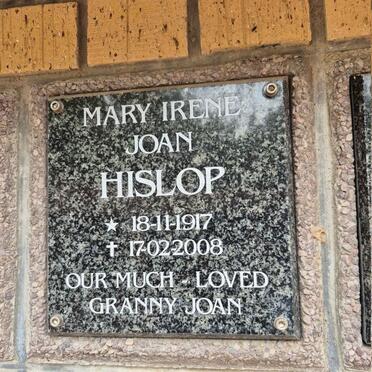 MARY IRENE
JOAN
HISLOP
★ 18-11-1917
✝ 17-02-2008
OUR MUCH - LOVED
GRANNY JOAN